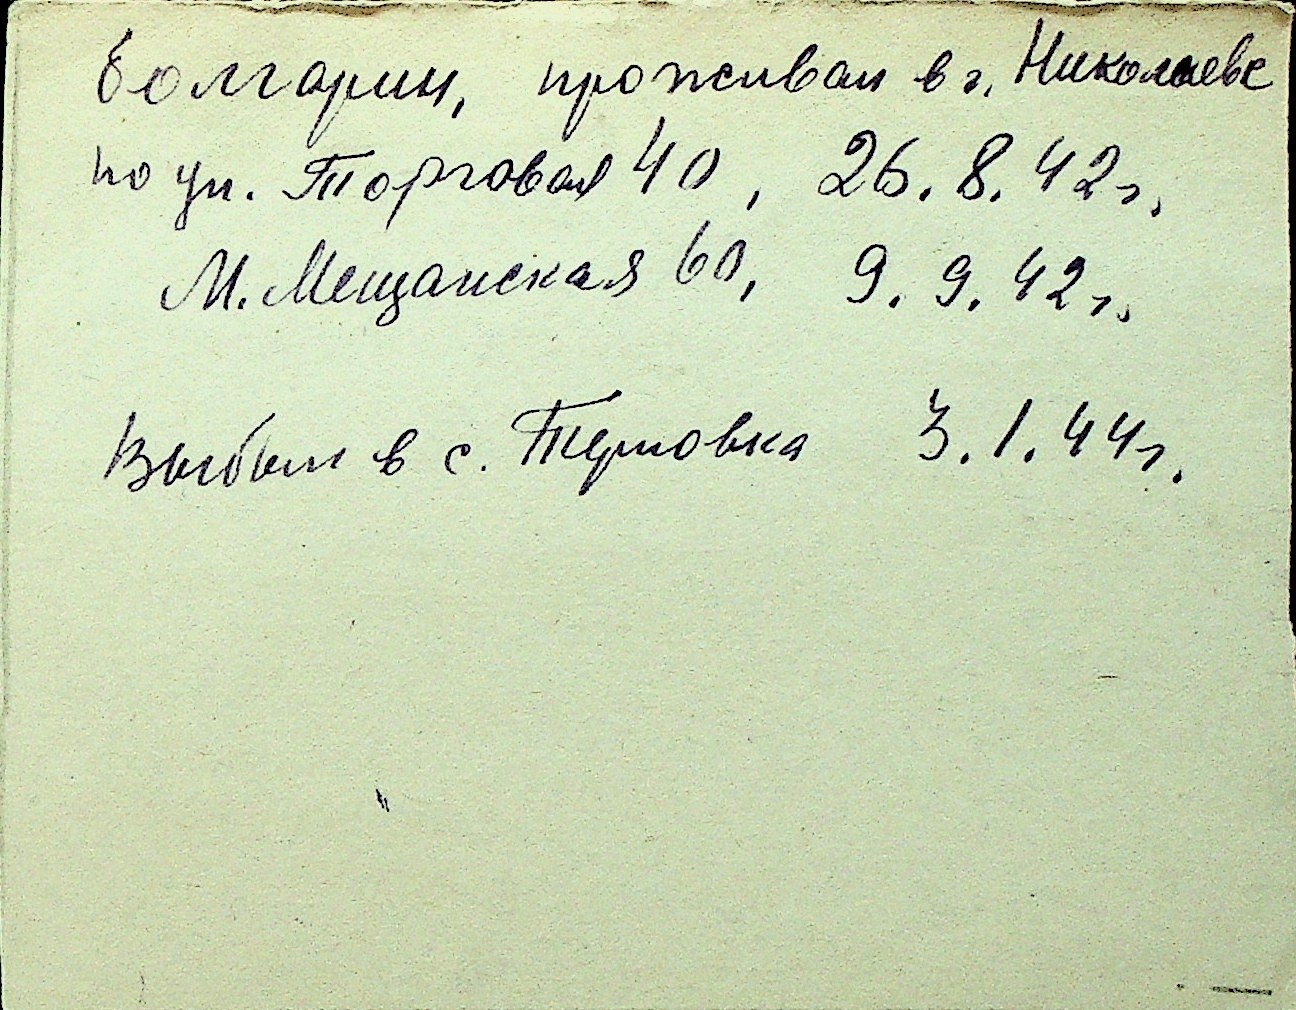 болгарин, проживал в г. Николаеве
по ул. Торговая 40, 26.8.42г.
М. Мещанская 60, 9.9.42г.
Выбыл в с. Терновка 3.1.44г.